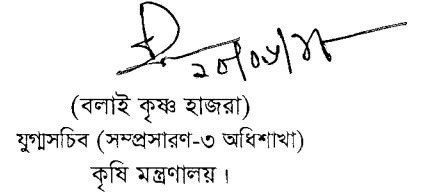 (বলাই কৃষ্ণ হাজরা)
যুগ্মসচিব (সম্প্রসারণ-৩ অধিশাখা)
কৃষি মন্ত্রণালয়।